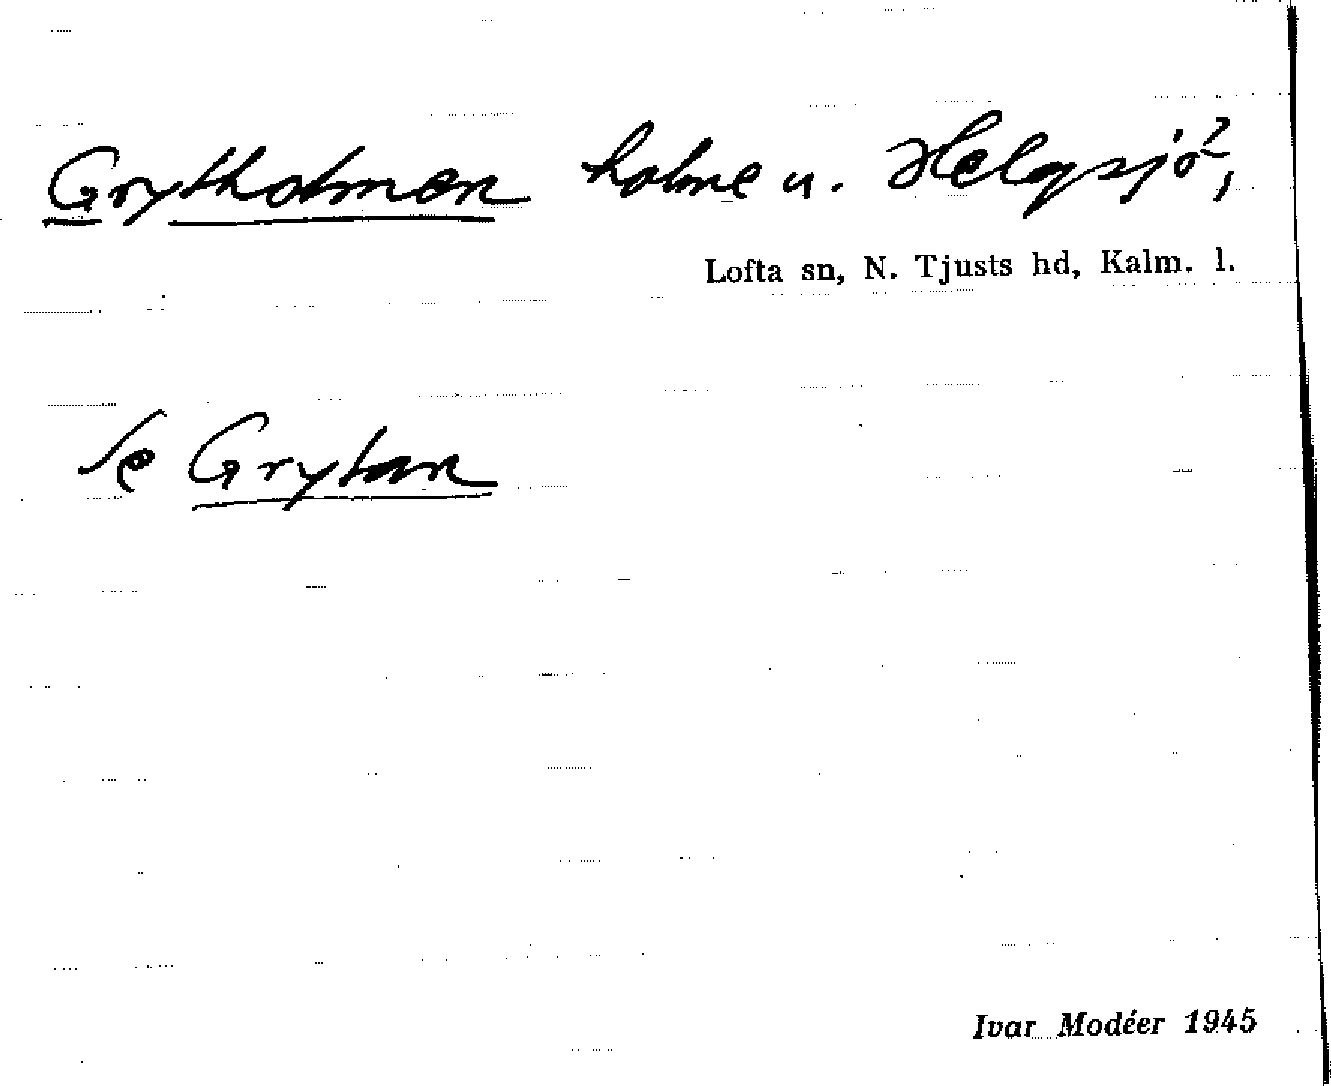 Grytholmen holme u. Helgsjö?,
Lofta sn, N. Tjusts hd, Kalm. l.
Se Grytan
Ivar Modéer 1945